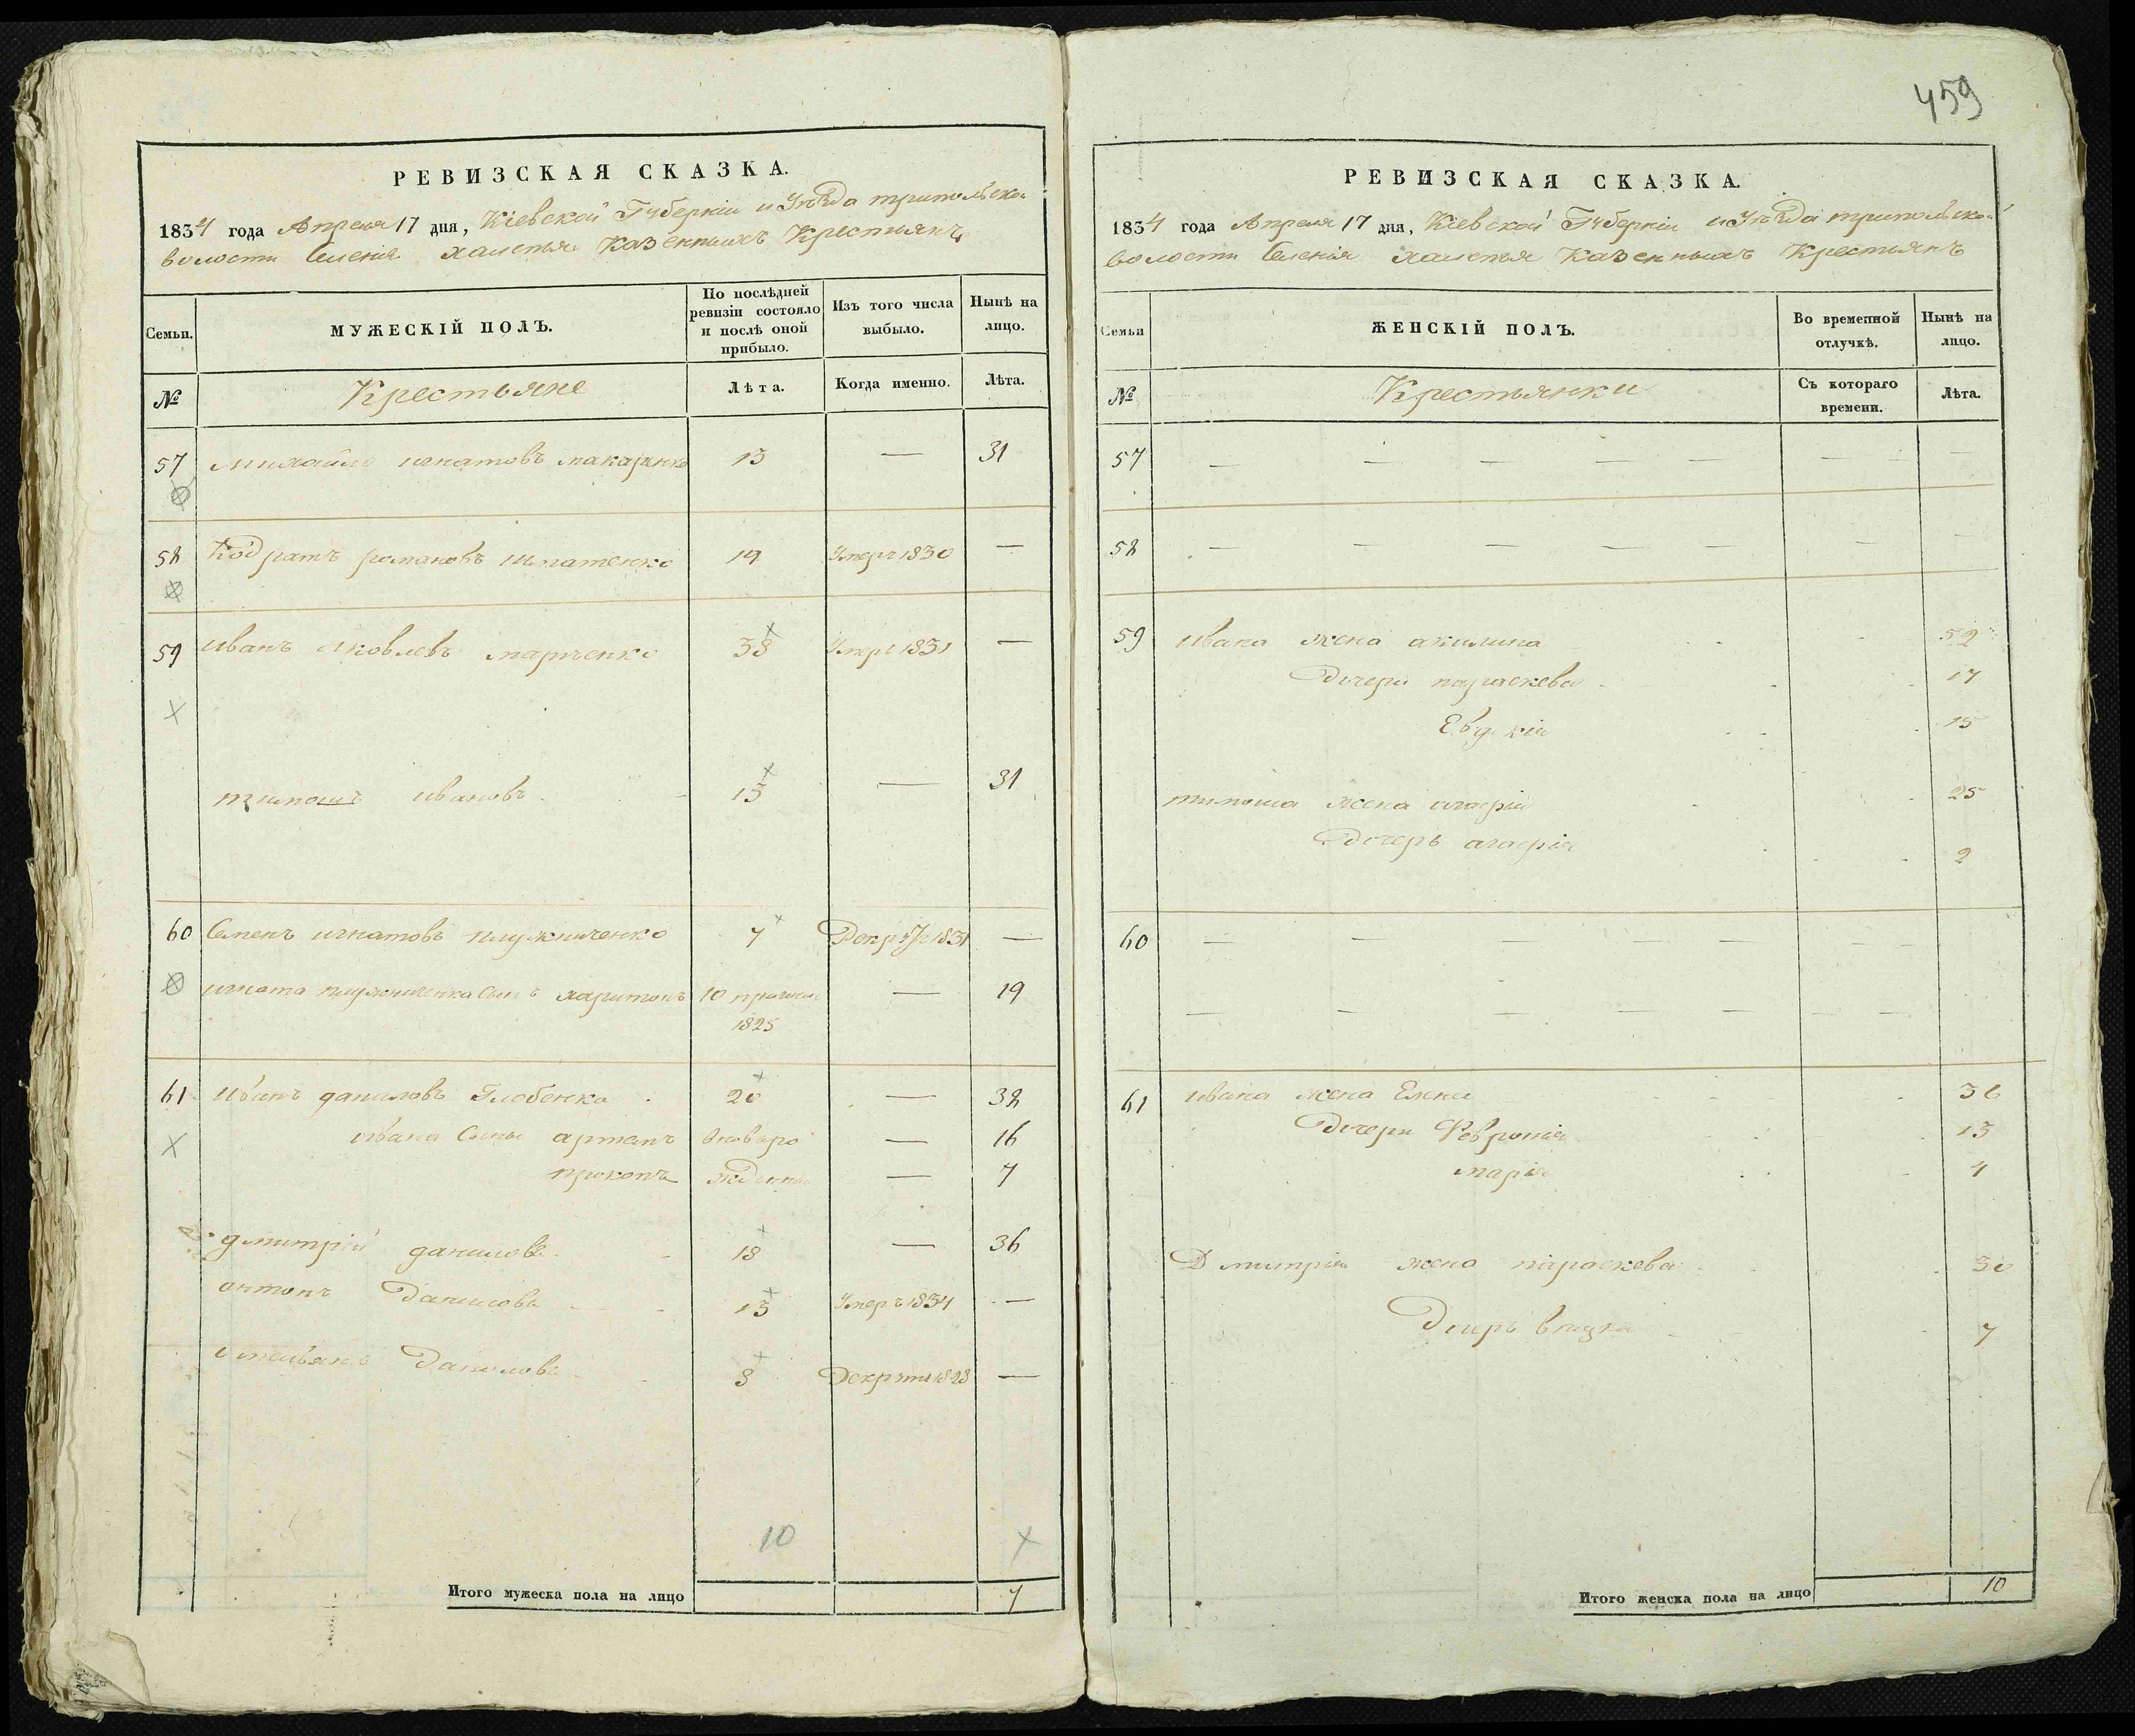 459
РЕВИЗСКАЯ СКАЗКА.
1834 года Апреля 17 дня, Кіевской Губерніи и Уѣзда трипольской
волости Селенія халепья Казенныхъ Крестьянъ
Семьи.
МУЖЕСКІЙ ПОЛЪ.
По послѣдней ревизіи состояло и послѣ оной прибыло.
Изъ того числа выбыло.
Нынѣ на лицо.
№
Крестьяне
Лѣта.
Когда именно.
Лѣта.
57 михайло игнатовъ макаренко 13 — 31
58 Кодратъ романовъ игнатенко 19 Умеръ 1830 —
59 иванъ яковлевъ марченко 38 Умеръ 1831 —
тимошъ ивановъ 13 — 31
60 Семенъ игнатовъ плужниченко 7 1831 —
игната плужниченка сынъ харитонъ 10 — 19
1825
61 иванъ даниловъ Глобенко 20 — 38
ивана сыны артемъ вноворо — 16
прокопъ жденны — 7
дмитрій даниловъ 18 — 36
антонъ Даниловъ 13 Умеръ 1834 —
омельянъ Даниловъ 8 1828 —
10
Итого мужеска пола на лицо 7
РЕВИЗСКАЯ СКАЗКА.
1834 года Апреля 17 дня, Кіевской Губерніи и Уѣзда трипольской
волости Селенія халепья Казенныхъ Крестьянъ
Семьи
ЖЕНСКІЙ ПОЛЪ.
Во временной отлучкѣ.
Нынѣ на лицо.
№
Крестьянки
Съ котораго времени.
Лѣта.
57 — — — — — — —
58 — — — — — — —
59 ивана жена акилина 52
Дочери параскева 17
Евдокія 15
тимоша жена агафія 25
Дочерь агафія 2
60 — — — — — —
— — — — — —
61 ивана жена Елена 36
Дочери Февронія 13
марія 4
Дмитрія жена параскева 30
Дочерь 7
Итого женска пола на лицо 10